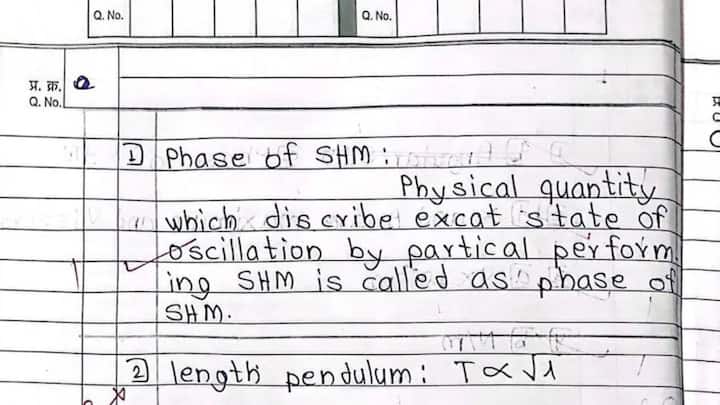 Q. No.
Q. No.
प्र. क्र.
Q. No.
1) Phase of SHM :
Physical quantity
which discribe excat state of
oscillation by partical perform
ing SHM is called as phase of
SHM.
2) length pendulum : T ∝ √l